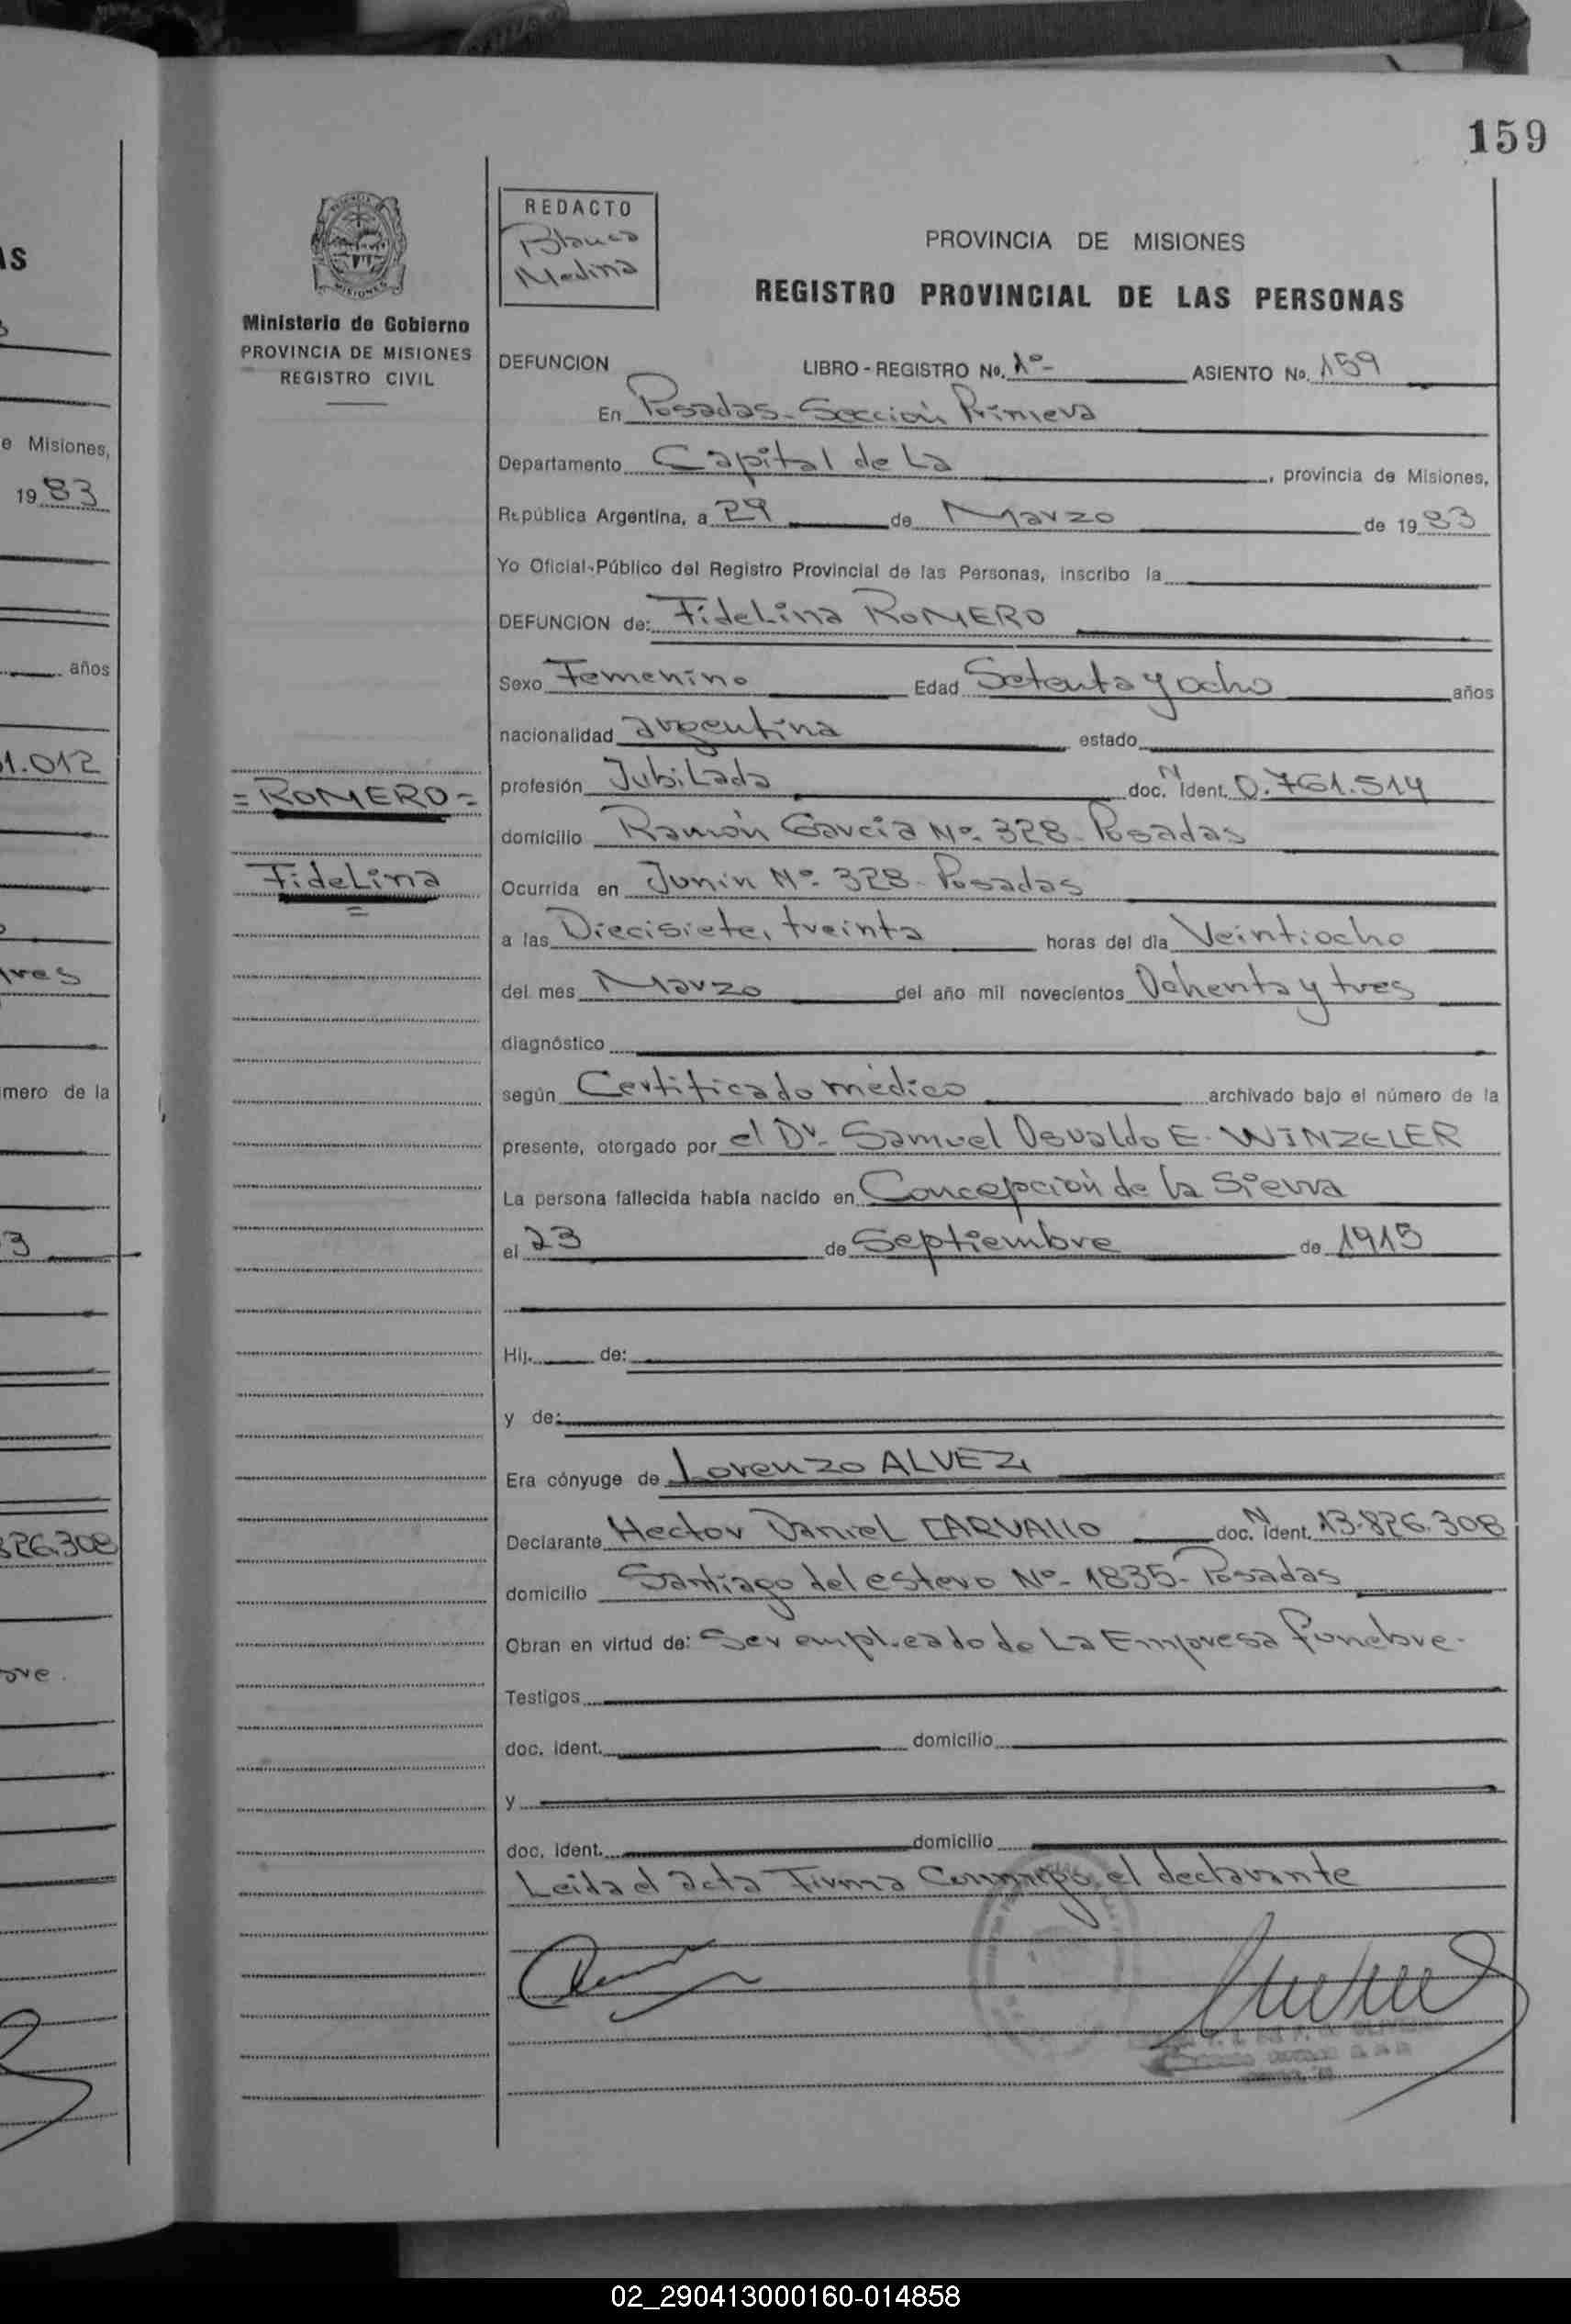 159
AS
REDACTO
Blanca
Medina
PROVINCIA DE MISIONES
REGISTRO PROVINCIAL DE LAS PERSONAS
MISIONES
Ministerio de Gobierno
PROVINCIA DE MISIONES
REGISTRO CIVIL
DEFUNCION LIBRO - REGISTRO No. 1º- ASIENTO No. 159
En Posadas - Sección Primera
e Misiones,
Departamento Capital de La, provincia de Misiones,
19 83
República Argentina, a 29 de Marzo de 19 83
Yo Oficial Público del Registro Provincial de las Personas, inscribo la
DEFUNCION de: Fidelina ROMERO
años
Sexo Femenino Edad Setenta y ocho años
nacionalidad argentina estado
1.012
profesión Jubilada doc. N ident. 0.761.514
= ROMERO =
domicilio Ramón García Nº- 328 - Posadas
Fidelina
=
Ocurrida en Junin Nº- 328 - Posadas
a las Diecisiete, treinta horas del día Veintiocho
del mes Marzo del año mil novecientos Ochenta y tres
diagnóstico
mero de la
según Certificado médico archivado bajo el número de la
presente, otorgado por el Dr. Samuel Osvaldo E. WINZELER
La persona fallecida había nacido en Concepción de la Sierra
3
el 23 de Septiembre de 1915
Hij. de:
y de:
Era cónyuge de Lorenzo ALVEZ
826.308
Declarante Hector Daniel CARVALLO doc. N ident. 13.826.308
domicilio Santiago del estero Nº- 1835 - Posadas
Obran en virtud de: Ser empleado de La Empresa fúnebre.
Testigos
doc. ident. domicilio
y
doc. ident. domicilio
Leida el acta Firma Conmigo, el declarante
02_290413000160-014858